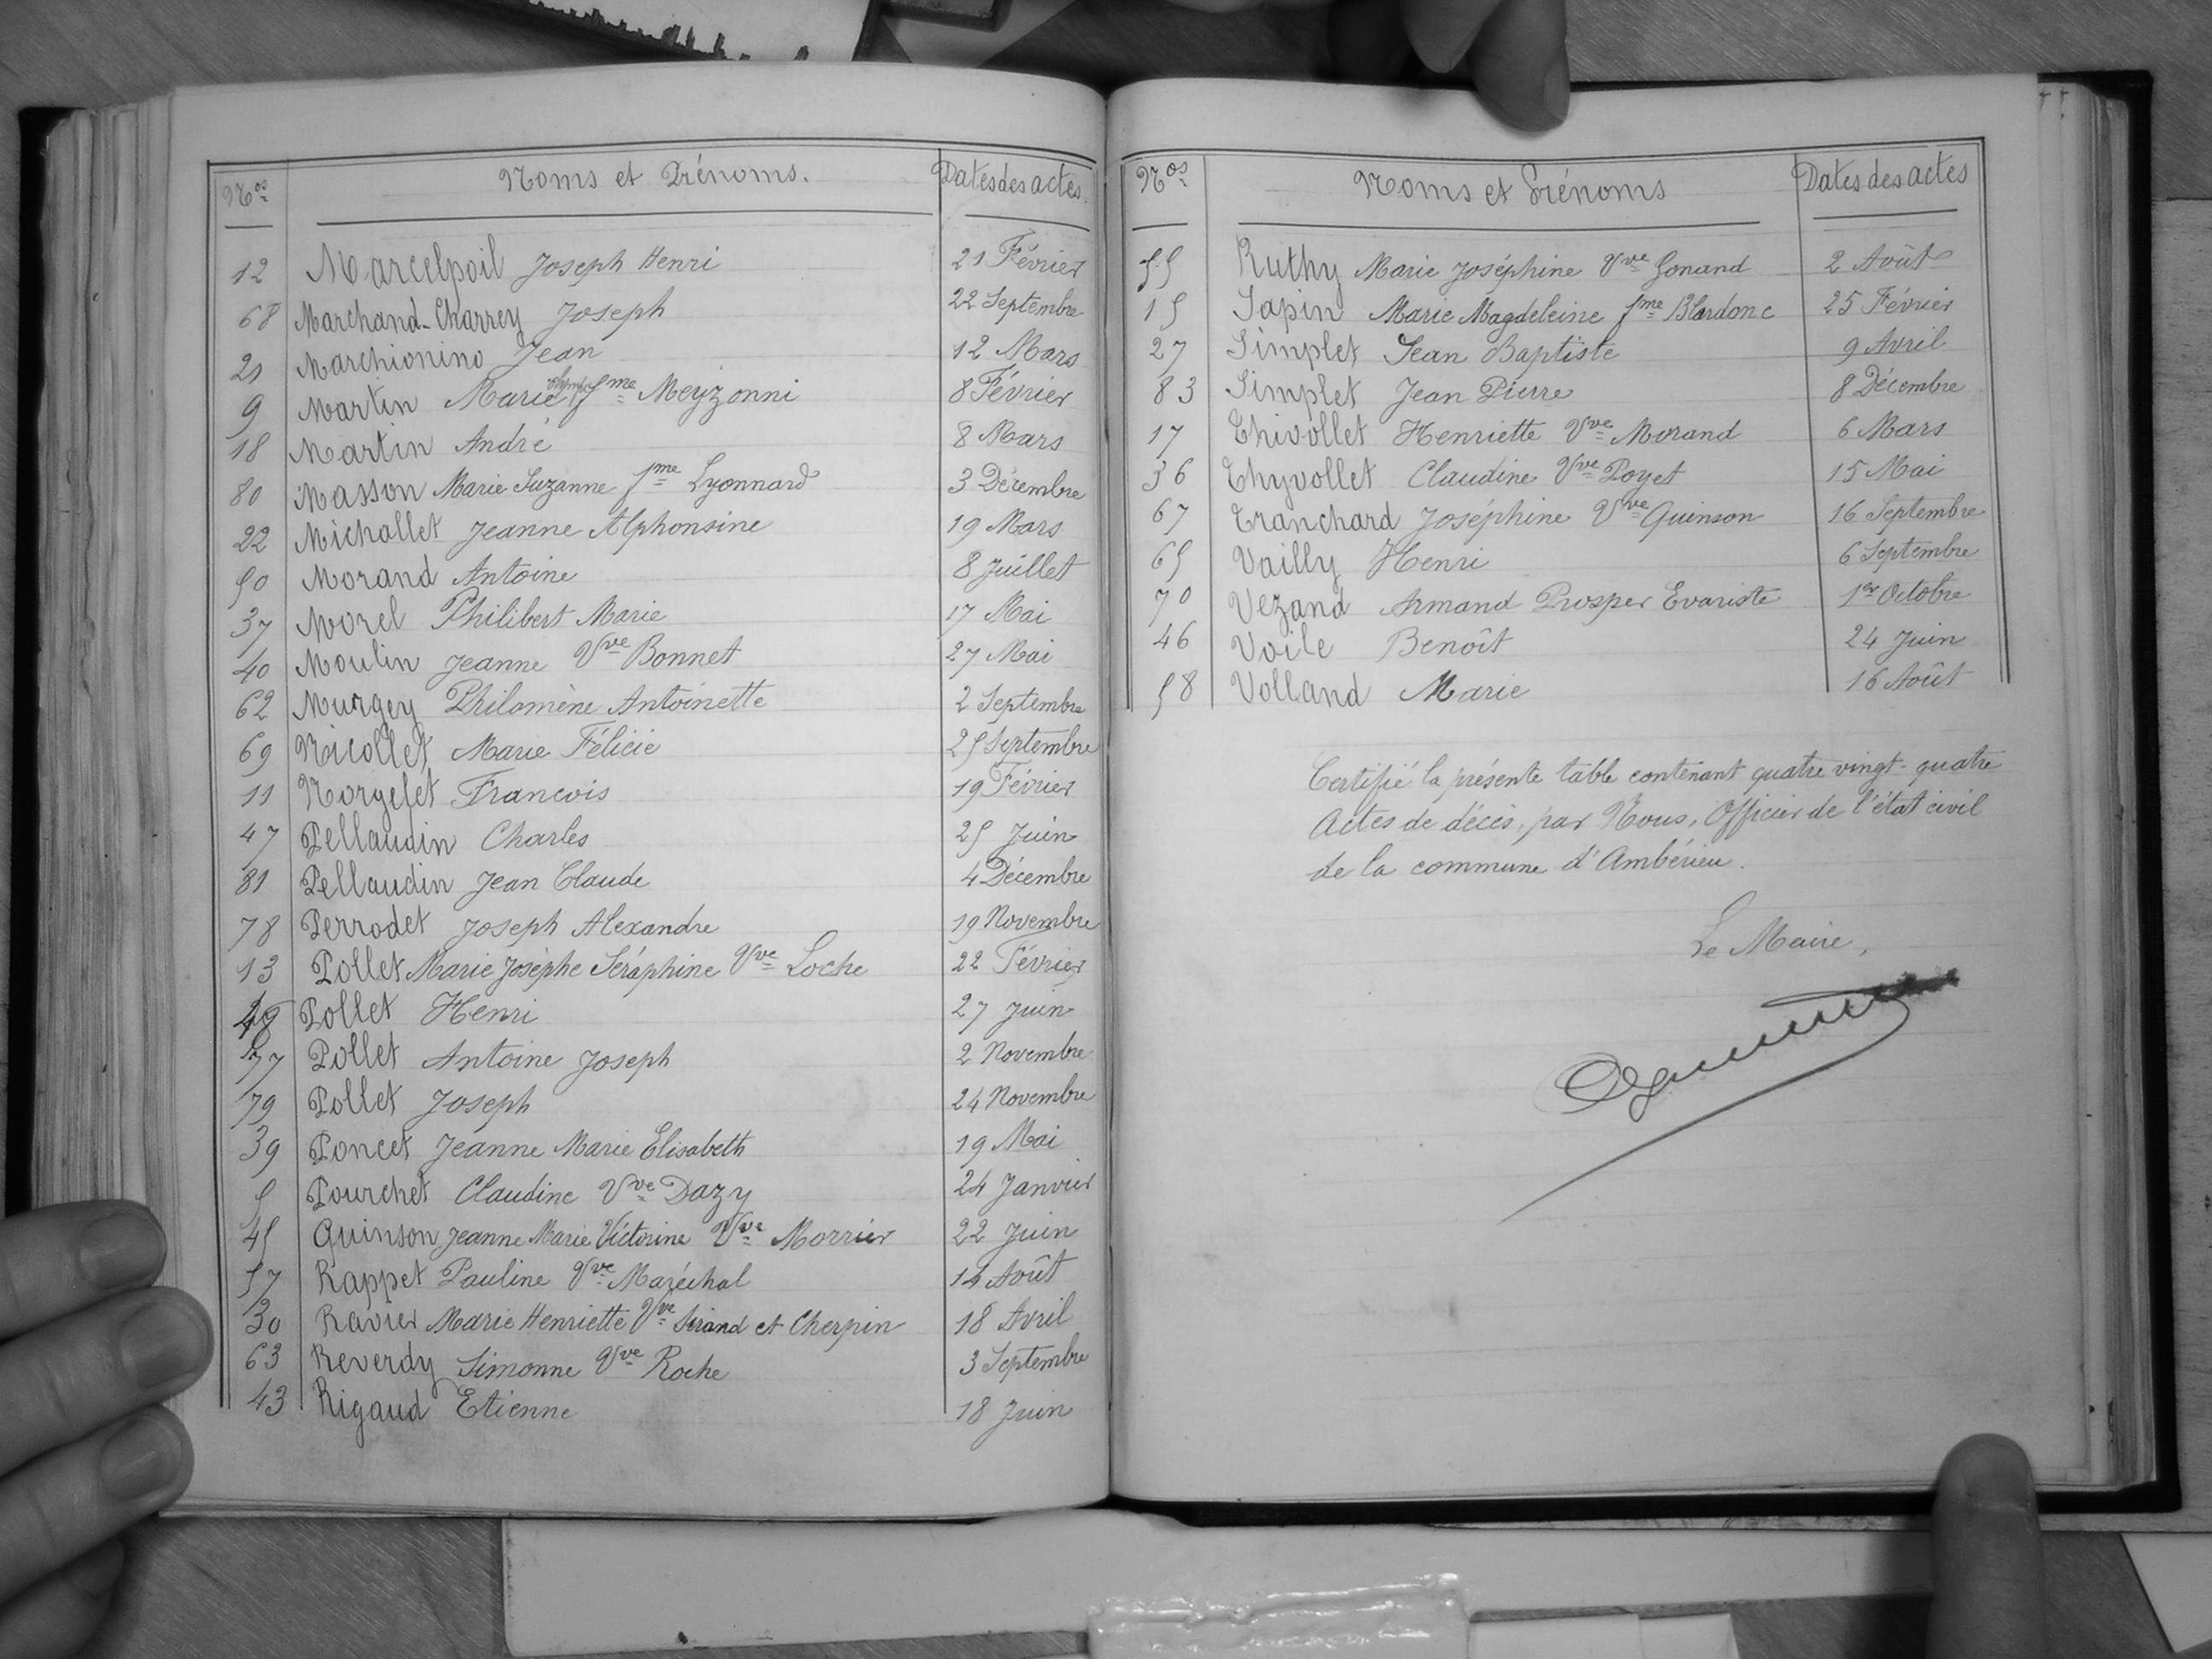 Nos Noms et Prénoms. Dates des actes.
12 Marcelpoil Joseph Henri 21 Février
68 Marchand-Charrey Joseph 22 Septembre
21 Marchionino Jean 12 Mars
9 Martin Marie fme Meyzonni 8 Février
18 Martin André 8 Mars
80 Masson Marie Suzanne fme Lyonnard 3 Décembre
22 Michallet Jeanne Alphonsine 19 Mars
50 Morand Antoine 8 Juillet
37 Morel Philibert Marie 17 Mai
40 Moulin Jeanne Vve Bonnet 27 Mai
62 Murgey Philomène Antoinette 2 Septembre
69 Nicollet Marie Félicie 25 Septembre
11 Norgelet Francois 19 Février
47 Pellaudin Charles 25 Juin
81 Pellaudin Jean Claude 4 Décembre
78 Perrodet Joseph Alexandre 19 Novembre
13 Pollet Marie Josèphe Séraphine Vve Loche 22 Février
Pollet Henri 27 Juin
77 Pollet Antoine Joseph 2 Novembre
79 Pollet Joseph 24 Novembre
39 Poncet Jeanne Marie Elisabeth 19 Mai
5 Pourchet Claudine Vve Dazy 24 Janvier
45 Quinson Jeanne Marie Victorine Vve Morrier 22 Juin
57 Rappet Pauline Vve Maréchal 14 Août
30 Ravier Marie Henriette Vve Sirand et Cherpin 18 Avril
63 Reverdy Simonne Vve Roche 3 Septembre
43 Rigaud Etienne 18 Juin
Nos Noms et Prénoms Dates des actes
55 Ruthy Marie Joséphine Vve Gonand 2 Août
15 Sapin Marie Magdeleine fme Blardone 25 Février
27 Simplet Jean Baptiste 9 Avril
83 Simplet Jean Pierre 8 Décembre
17 Thivollet Henriette Vve Morand 6 Mars
36 Thyvollet Claudine Vve Poyet 15 Mai
67 Tranchard Joséphine Vve Quinson 16 Septembre
65 Vailly Henri 6 Septembre
70 Vezand Armand Prosper Evariste 1er Octobre
46 Voile Benoît 24 Juin
58 Volland Marie 16 Août
Certifié la présente table contenant quatre vingt-quatre
Actes de décès, par Nous, Officier de l'état civil
de la commune d'Ambérieu.
Le Maire,